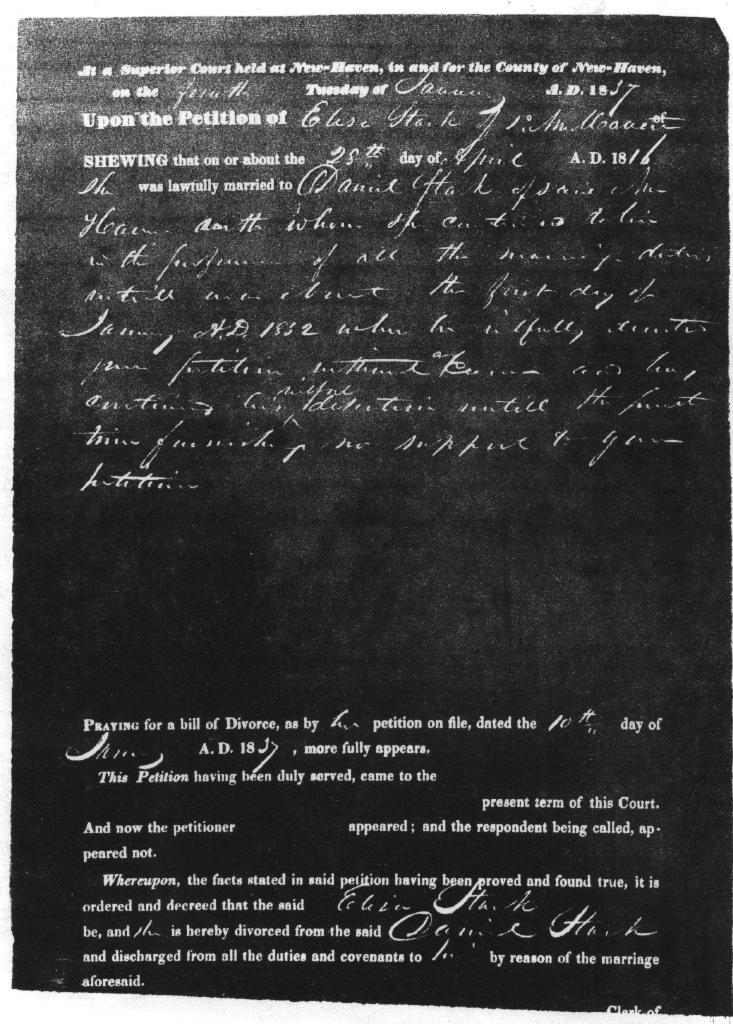 At a Superior Court held at New-Haven, in and for the County of New-Haven,
on the fourth Tuesday of January A. D. 1837
Upon the Petition of Eliza Stark of sd. New Haven of
SHEWING that on or about the 28th day of April A. D. 1816
she was lawfully married to Daniel Stark of said New
Haven with whom she continued to live
in the performance of all the marriage duties
untill on or about the first day of
January A.D. 1832 when he wilfully deserted
your petitioner without a cause and has
continued his wilful desertion untill the present
time furnishing no support to your
petitioner
PRAYING for a bill of Divorce, as by her petition on file, dated the 10th day of
January A. D. 1837, more fully appears.
This Petition having been duly served, came to the
present term of this Court.
And now the petitioner appeared; and the respondent being called, ap-
peared not.
Whereupon, the facts stated in said petition having been proved and found true, it is
ordered and decreed that the said Eliza Stark
be, and she is hereby divorced from the said Daniel Stark
and discharged from all the duties and covenants to him by reason of the marriage
aforesaid.
Clerk of